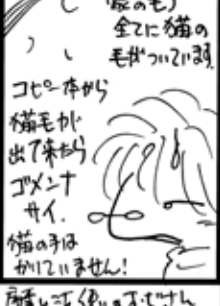 全てに猫の
毛がついています
コピー本から
猫毛が
出て来たら
ゴメンナ
サイ.
猫の手は
かりていません!